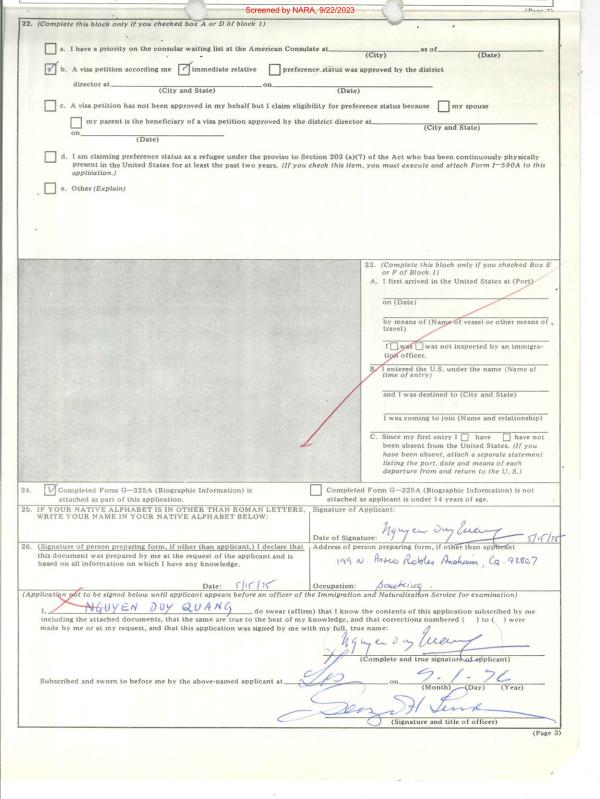 Screened by NARA, 9/22/2023
22. (Complete this block only if you checked box A or D of block 1)
a. I have a priority on the consular waiting list at the American Consulate at as of
(City) (Date)
b. A visa petition according me immediate relative preference status was approved by the district
director at on
(City and State) (Date)
c. A visa petition has not been approved in my behalf but I claim eligibility for preference status because my spouse
my parent is the beneficiary of a visa petition approved by the district director at
(City and State)
on
(Date)
d. I am claiming preference status as a refugee under the proviso to Section 203 (a)(7) of the Act who has been continuously physically
present in the United States for at least the past two years. (If you check this item, you must execute and attach Form I-590A to this
application.)
e. Other (Explain)
23. (Complete this block only if you checked Box E
or F of Block 1)
A. I first arrived in the United States at (Port)
on (Date)
by means of (Name of vessel or other means of
travel)
I was was not inspected by an immigra-
tion officer.
B. I entered the U.S. under the name (Name at
time of entry)
and I was destined to (City and State)
I was coming to join (Name and relationship)
C. Since my first entry I have have not
been absent from the United States. (If you
have been absent, attach a separate statement
listing the port, date and means of each
departure from and return to the U.S.)
24. Completed Form G-325A (Biographic Information) is
attached as part of this application.
Completed Form G-325A (Biographic Information) is not
attached as applicant is under 14 years of age.
25. IF YOUR NATIVE ALPHABET IS IN OTHER THAN ROMAN LETTERS,
WRITE YOUR NAME IN YOUR NATIVE ALPHABET BELOW:
Signature of Applicant:
Nguyen Duy Quang
Date of Signature: 5/15/75
26. (Signature of person preparing form, if other than applicant.) I declare that
this document was prepared by me at the request of the applicant and is
based on all information on which I have any knowledge.
Date: 5/15/75
Address of person preparing form, if other than applicant
199 N. Paseo Robles Anaheim, Ca. 92807
Occupation:
(Application not to be signed below until applicant appears before an officer of the Immigration and Naturalization Service for examination)
I, NGUYEN DUY QUANG do swear (affirm) that I know the contents of this application subscribed by me
including the attached documents, that the same are true to the best of my knowledge, and that corrections numbered ( ) to ( ) were
made by me or at my request, and that this application was signed by me with my full, true name:
Nguyen Duy Quang
(Complete and true signature of applicant)
Subscribed and sworn to before me by the above-named applicant at on 9-1-76
(Month) (Day) (Year)
(Signature and title of officer)
(Page 3)